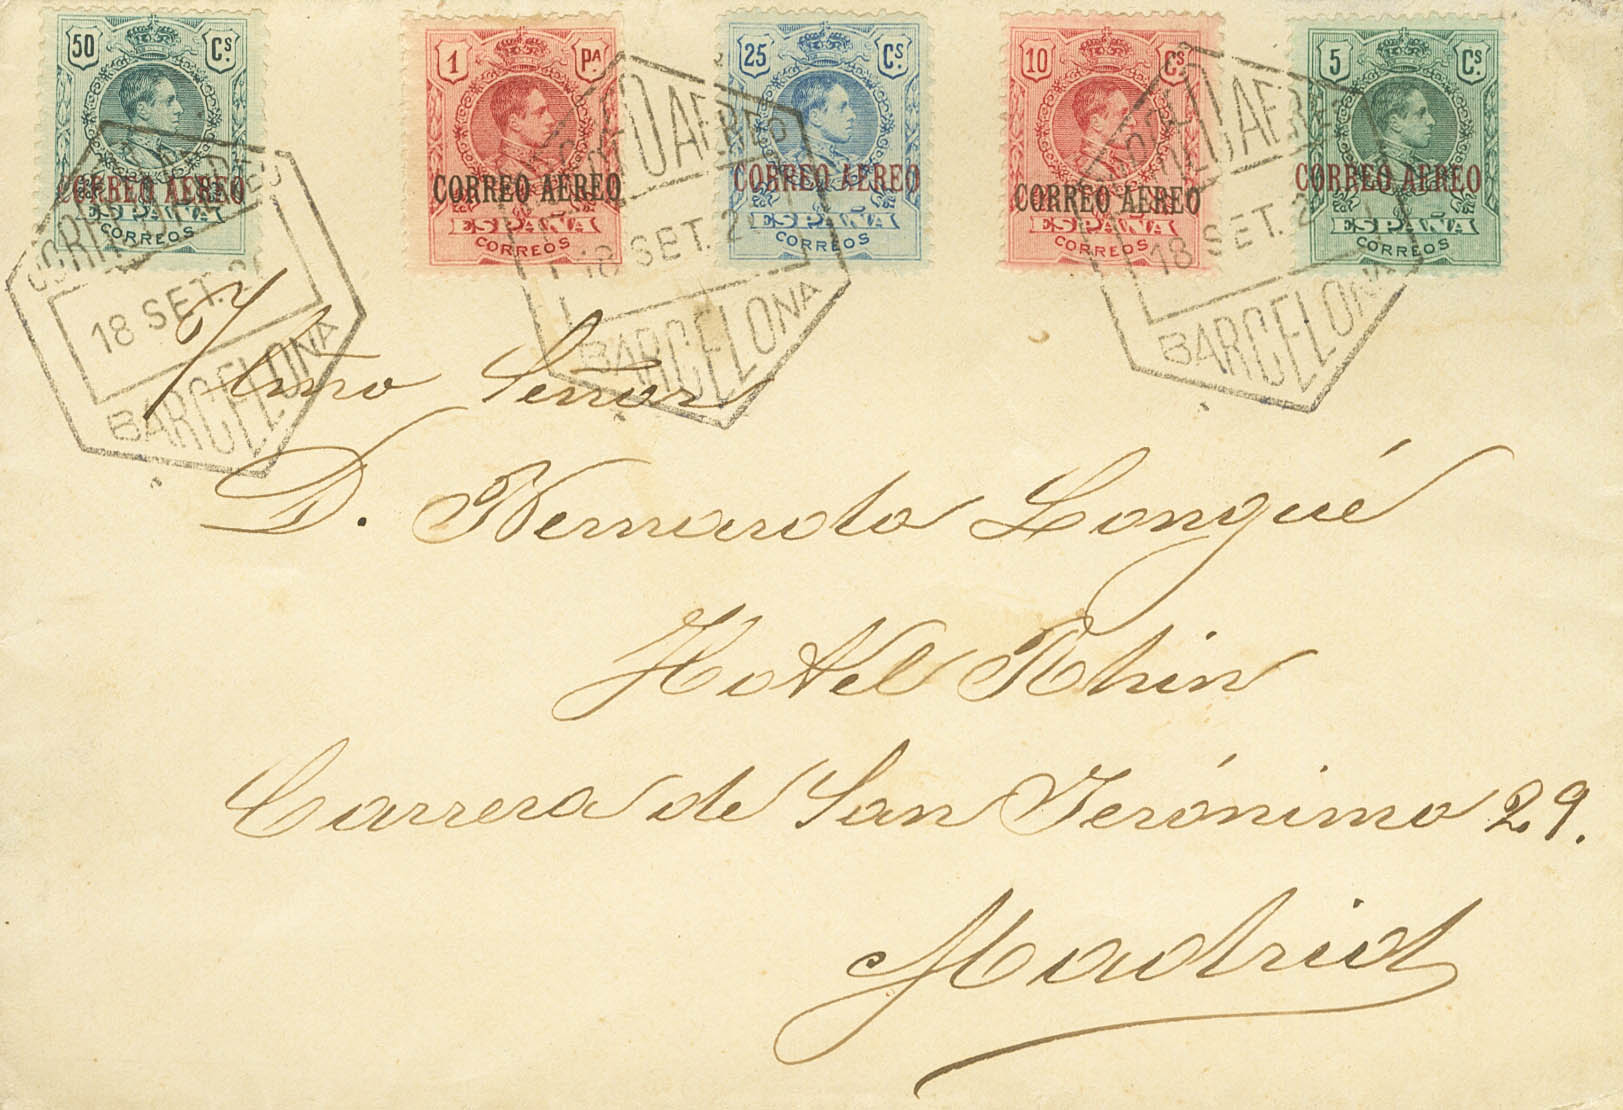 50 Cs
1 PA.
25 Cs
10 Cs
5 Cs
CORREO AEREO
CORREO AEREO
CORREO AEREO
CORREO AEREO
CORREO AEREO
ESPAÑA
CORREOS
ESPAÑA
CORREOS
ESPAÑA
CORREOS
ESPAÑA
CORREOS
ESPAÑA
CORREOS
CORREO AEREO
18 SET. 2
BARCELONA
CORREO AEREO
18 SET. 2
BARCELONA
CORREO AEREO
18 SET. 2
BARCELONA
Señor
D. Bernardo Longué
Hotel Rhin
Carrera de San Jerónimo 29.
Madrid